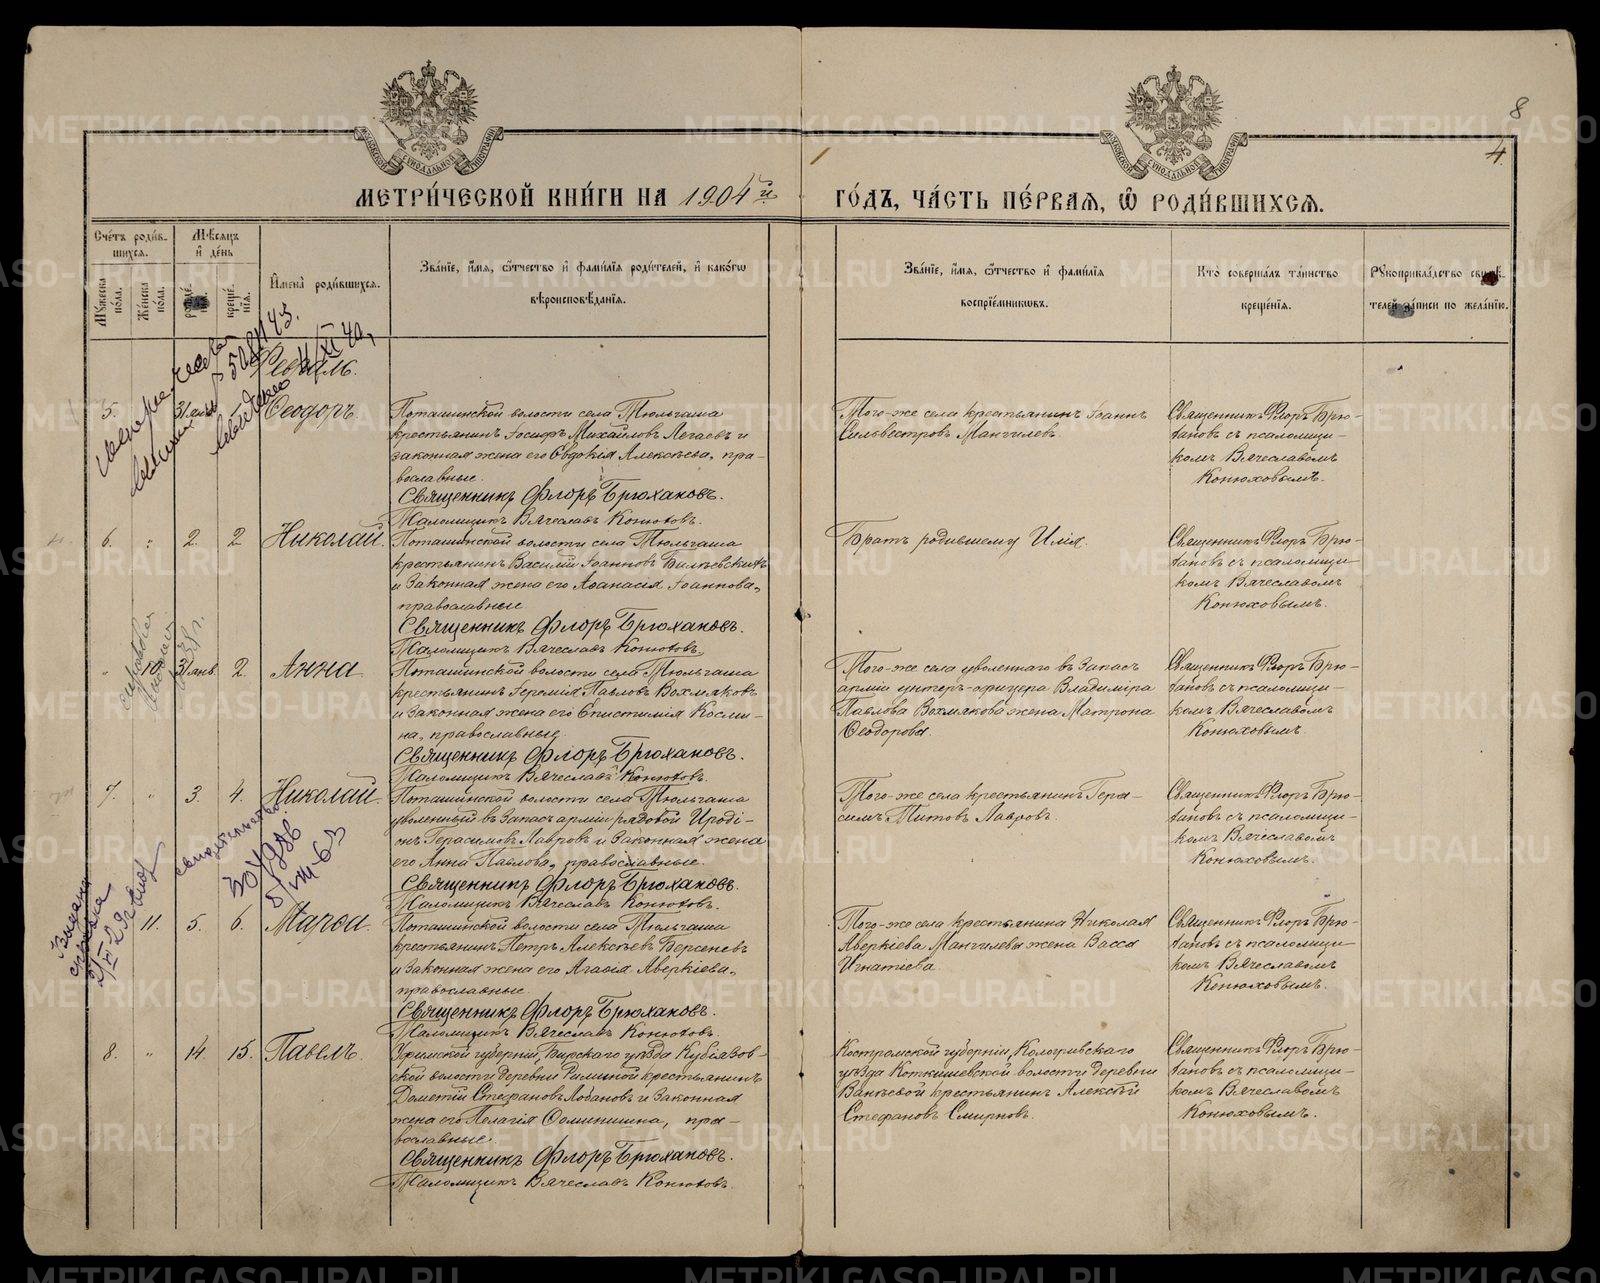 8
4.
МОСКОВСКОЙ СѴНОДАЛЬНОЙ ТИПОГРАФІИ
МОСКОВСКОЙ СѴНОДАЛЬНОЙ ТИПОГРАФІИ
МЕТРИ́ЧЕСКОЙ КНИ́ГИ НА 1904й
ГО́ДЪ, ЧА́СТЬ ПЕ́РВАЯ, Ѽ РОДИ́ВШИХСЯ.
Сче́тъ роди́в-
шихся.
Мѣсяцъ
и де́нь
Му́жеска по́ла.
Же́нска по́ла.
креще́нїя.
Имена̀ роди́вшихся.
Зва́нїе, и́мя, ѻ҆́тчество и҆ фами́лїя роди́телей, и҆ како́гѡ
вѣроисповѣ́данїя.
Зва́нїе, и́мя, ѻ҆́тчество и҆ фами́лїя
воспрїе́мникѡвъ.
Кто̀ соверша́лъ та́инство
креще́нїя.
Рꙋкоприкла́дство свидѣ́-
телей за́писи по жела́нїю.
Февраль.
5.
31 янв.
2
Ѳеодоръ.
Поташинской волости села Тюльгаша
крестьянинъ Іосифъ Михайловъ Легаевъ и
законная жена его Евдокія Алексѣева, пра-
вославные.
Священникъ Флоръ Брюхановъ.
Псаломщикъ Вячеславъ Конюховъ.
Того-же села крестьянинъ Іоаннъ
Сильвестровъ Мангилевъ
Священникъ Флоръ Брю-
хановъ съ псаломщи-
комъ Вячеславомъ
Конюховымъ.
6.
"
2.
2
Николай.
Поташинской волости села Тюльгаша
крестьянинъ Василій Іоанновъ Бильевскихъ
и законная жена его Аѳанасія Іоаннова,
православные
Священникъ Флоръ Брюхановъ.
Псаломщикъ Вячеславъ Конюховъ.
Братъ родившему Илія.
Священникъ Флоръ Брю-
хановъ съ псаломщи-
комъ Вячеславомъ
Конюховымъ.
"
10
31 янв.
2.
Анна
Поташинской волости села Тюльгаша
крестьянинъ Іеремія Павловъ Вохмяковъ
и законная жена его Епистимія Косми-
на, православные.
Священникъ Флоръ Брюхановъ.
Псаломщикъ Вячеславъ Конюховъ.
Того-же села уволеннаго въ запасъ
арміи унтеръ-офицера Владиміра
Павлова Вохмякова жена Матрона
Ѳеодорова.
Священникъ Флоръ Брю-
хановъ съ псаломщи-
комъ Вячеславомъ
Конюховымъ.
7.
"
3.
4.
Николай.
Поташинской волости села Тюльгаша
уволенный въ запасъ арміи рядовой Ироді-
онъ Герасимовъ Лавровъ и законная жена
его Анна Павлова, православные.
Священникъ Флоръ Брюхановъ.
Псаломщикъ Вячеславъ Конюховъ.
Того-же села крестьянинъ Гера-
симъ Титовъ Лавровъ.
Священникъ Флоръ Брю-
хановъ съ псаломщи-
комъ Вячеславомъ
Конюховымъ.
11.
5.
6.
Марѳа.
Поташинской волости села Тюльгаша
крестьянинъ Петръ Алексѣевъ Берсеневъ
и законная жена его Агафія Аверкіева,
православные.
Священникъ Флоръ Брюхановъ.
Псаломщикъ Вячеславъ Конюховъ.
Того-же села крестьянина Николая
Аверкіева Мангилевы жена Васса
Игнатіева
Священникъ Флоръ Брю-
хановъ съ псаломщи-
комъ Вячеславомъ
Конюховымъ.
8.
"
14.
15.
Павелъ.
Уфимской губерніи, Бирскаго уѣзда Кубіязов-
ской волости деревни крестьянинъ
Дометій Стефановъ Лобановъ и законная
жена его Пелагія Ѳоминишна, пра-
вославные.
Священникъ Флоръ Брюхановъ.
Псаломщикъ Вячеславъ Конюховъ.
Костромской губерніи, Кологривскаго
уѣзда волости деревни
крестьянинъ Алексѣй
Стефановъ Смирновъ.
Священникъ Флоръ Брю-
хановъ съ псаломщи-
комъ Вячеславомъ
Конюховымъ.
METRIKI.GASO-URAL.RU